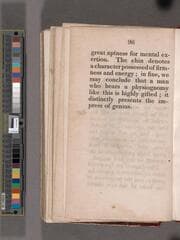 96
great aptness for mental ex-
ertion. The chin denotes
a character possessed of firm-
ness and energy; in fine, we
may conclude that a man
who bears a physiognomy
like this is highly gifted; it
distinctly presents the im-
press of genius.